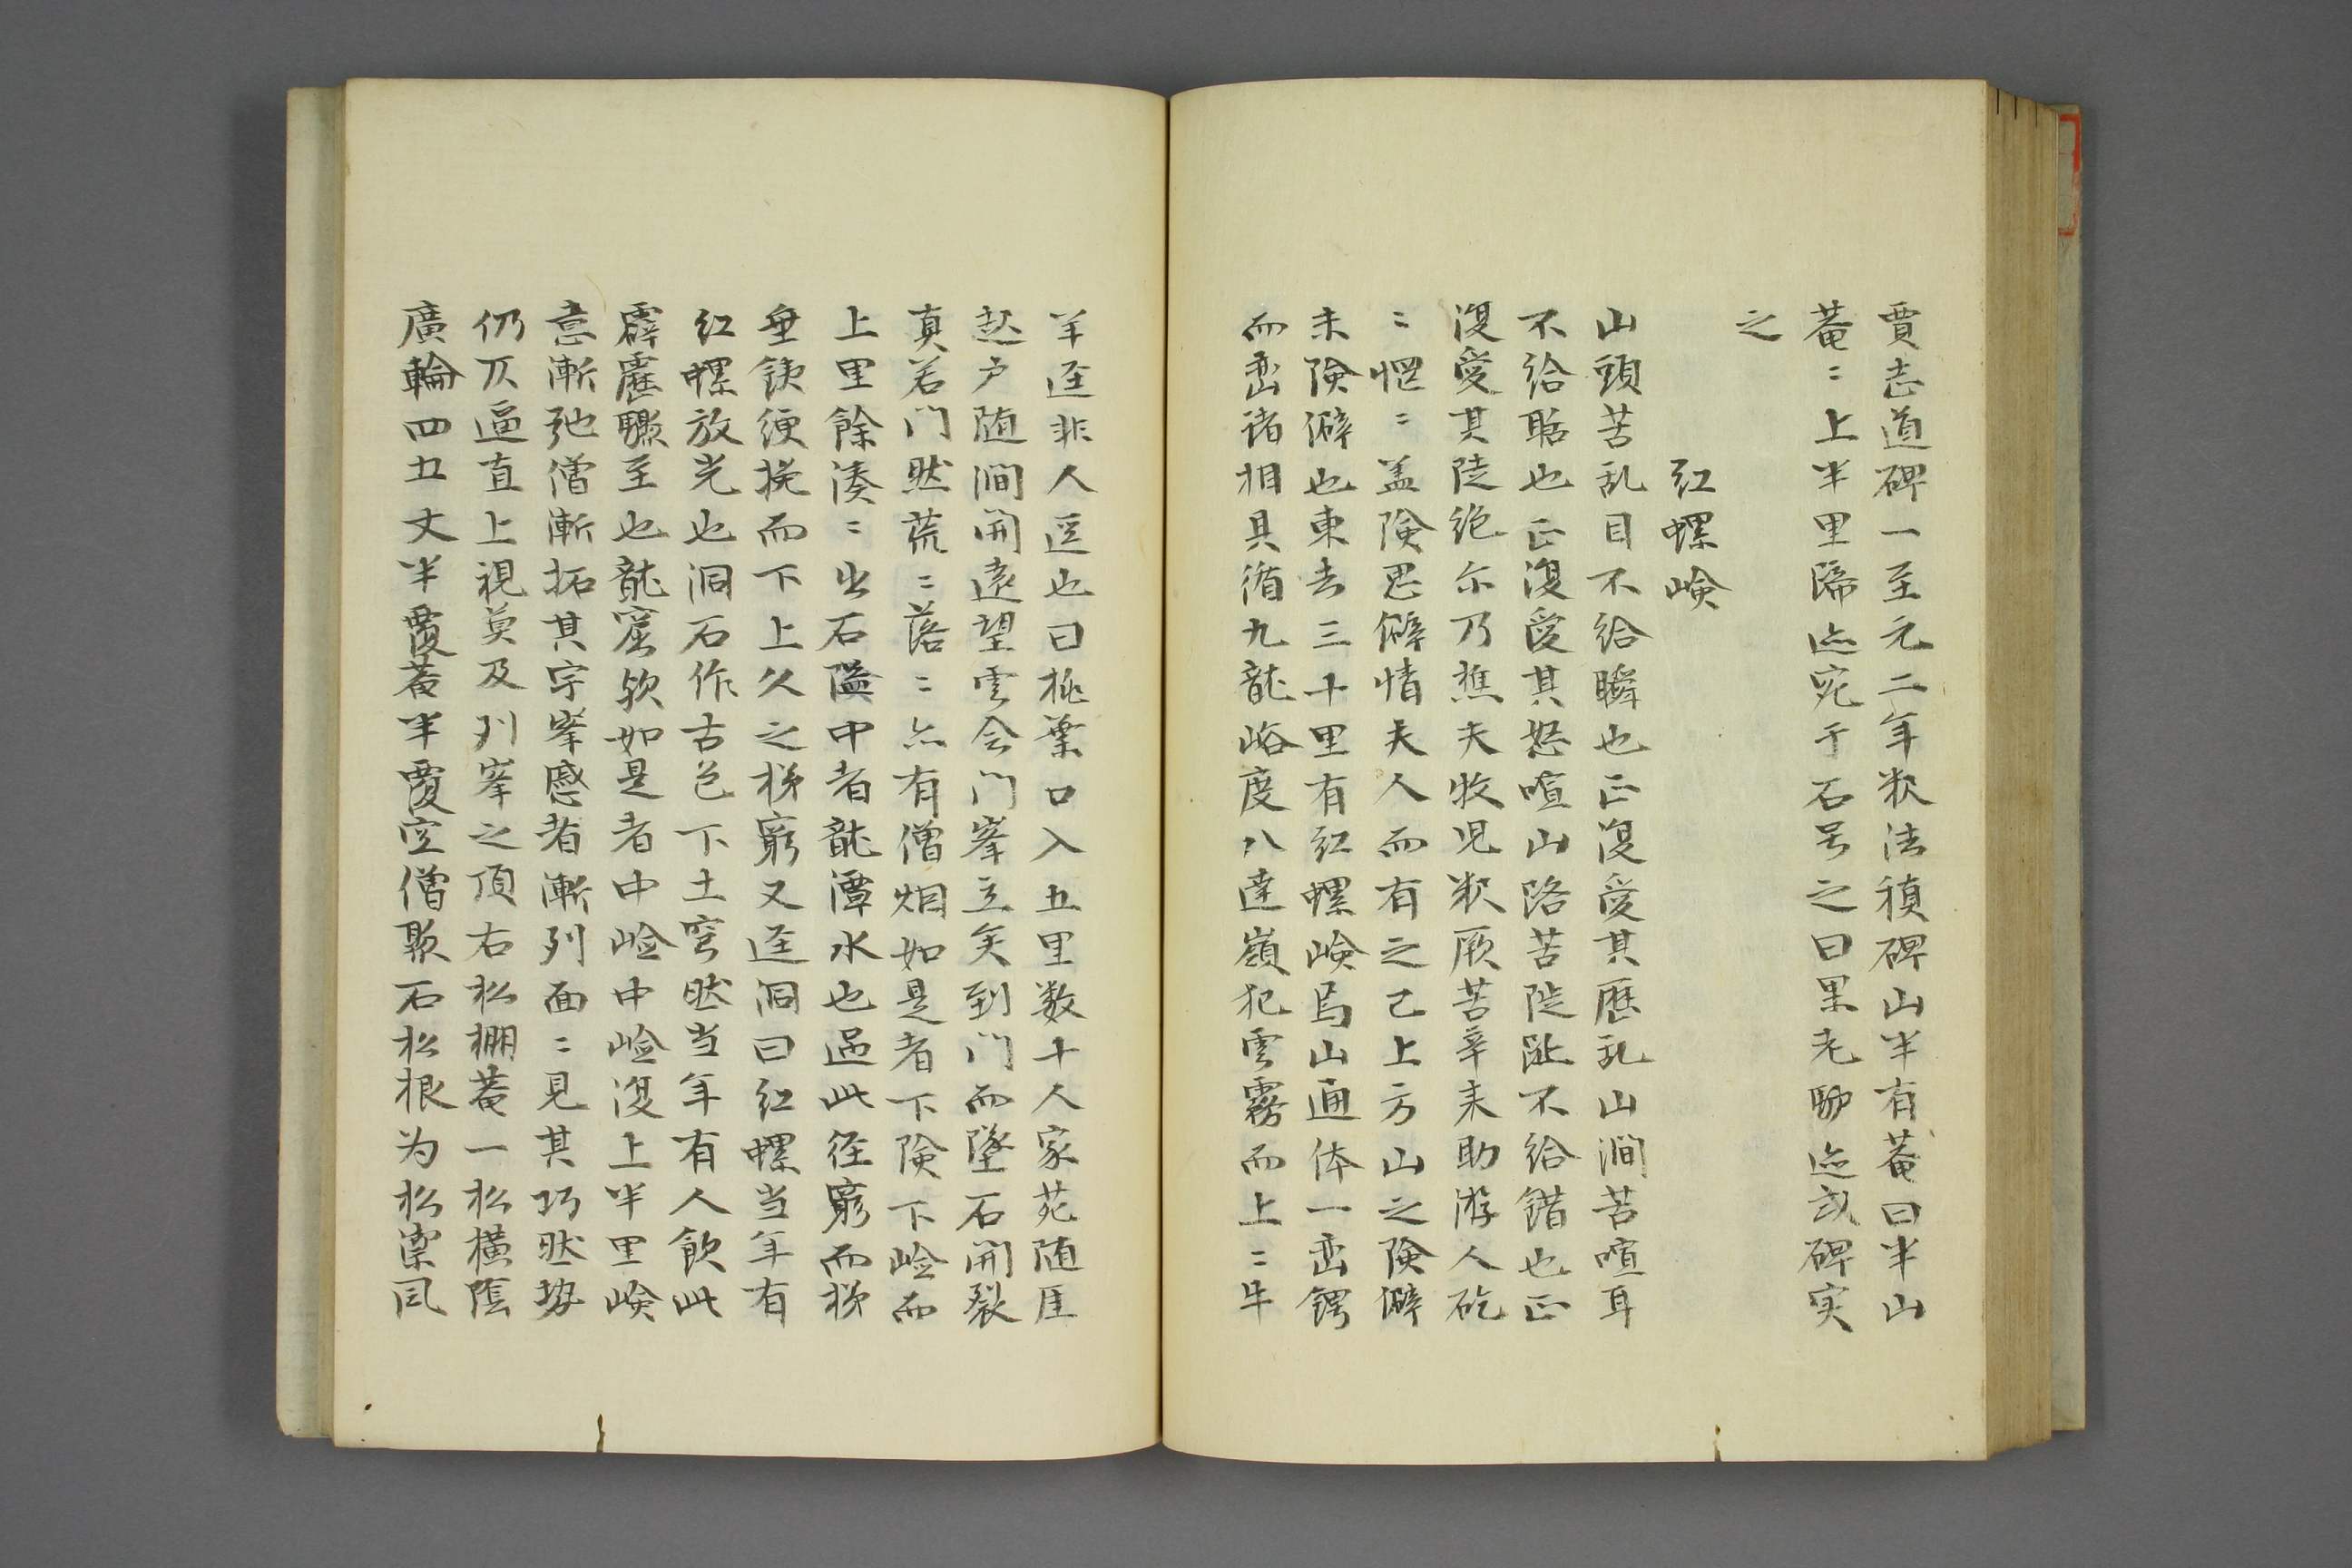 賈志道碑一至元二年釈法禎碑山半有菴曰半山
菴〻上半里蹄迹宛于石号之曰果老驴迹或碑实
之
紅螺嶮
山頭苦乱目不给瞬也正復爱其歴乱山澗苦喧耳
不给聒也正復爱其怒喧山路苦陡趾不给錯也正
復爱其陡绝尔乃樵夫牧児釈厥苦辛来助游人矻
〻悃〻盖険思僻情夫人而有之已上方山之険僻
未険僻也東去三十里有紅螺嶮焉山通体一峦鍔
而峦诸相具循九龍峪度八達嶺犯雲霧而上〻牛
羊逕非人逕也曰桃葉口入五里数十人家苑随厓
起户随澗開遠望雲会门峯立矣到门而墜石開裂
真若门然荒〻落〻亦有僧烟如是者下険下崄而
上里餘湊〻出石隘中者龍潭水也過此径窮而梯
垂鉄绠挽而下上久之梯窮又逕洞曰紅螺当年有
紅螺放光也洞石作古色下土穹然当年有人飲此
霹靂驟至也龍窟欤如是者中崄中崄復上半里嶮
意漸弛僧漸拓其宇峯慼者漸列面〻見其巧然势
仍仄逼直上視莫及列峯之顶右松棚菴一松横陰
廣輪四五丈半覆菴半覆空僧聚石松根为松禦風